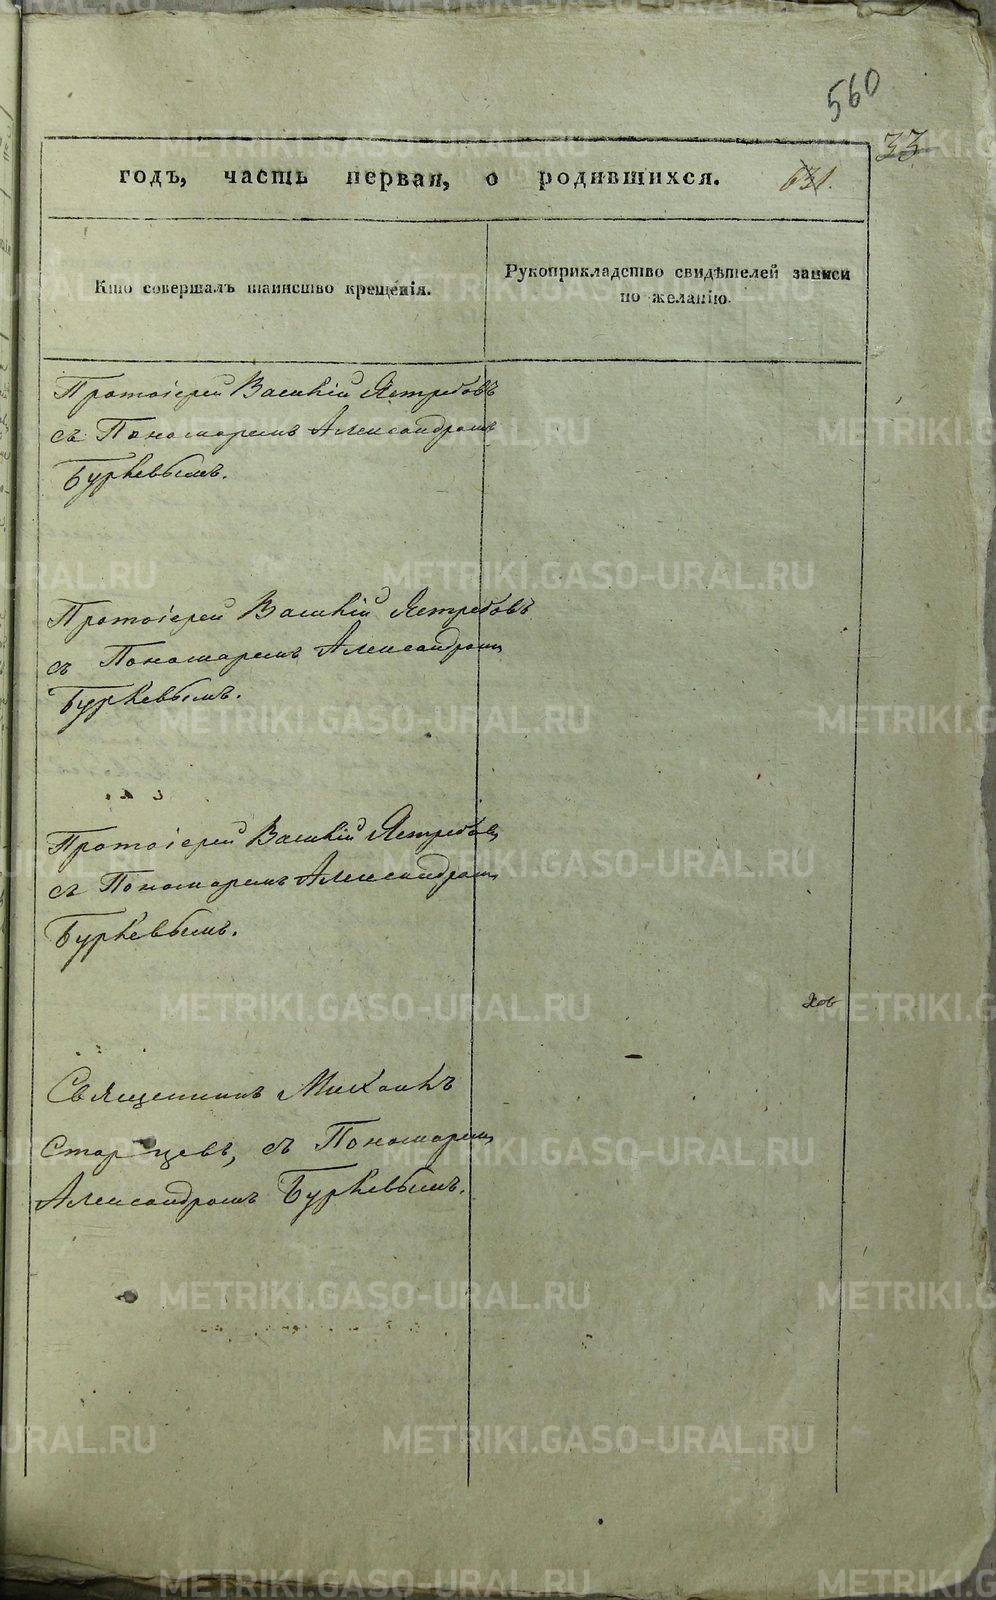 560
33
годъ, часть первая, о родившихся. 631.
Кто совершалъ таинство крещенія.
Рукоприкладство свидѣтелей записи
по желанію.
Протоіерей Василій Ястребовъ
съ Пономаремъ Александромъ
Бурлевымъ.
Протоіерей Василій Ястребовъ
съ Пономаремъ Александромъ
Бурлевымъ.
Протоіерей Василій Ястребовъ
съ Пономаремъ Александромъ
Бурлевымъ.
Священникъ Михаилъ
Старцевъ, съ Пономаремъ
Александромъ Бурлевымъ.
METRIKI.GASO-URAL.RU